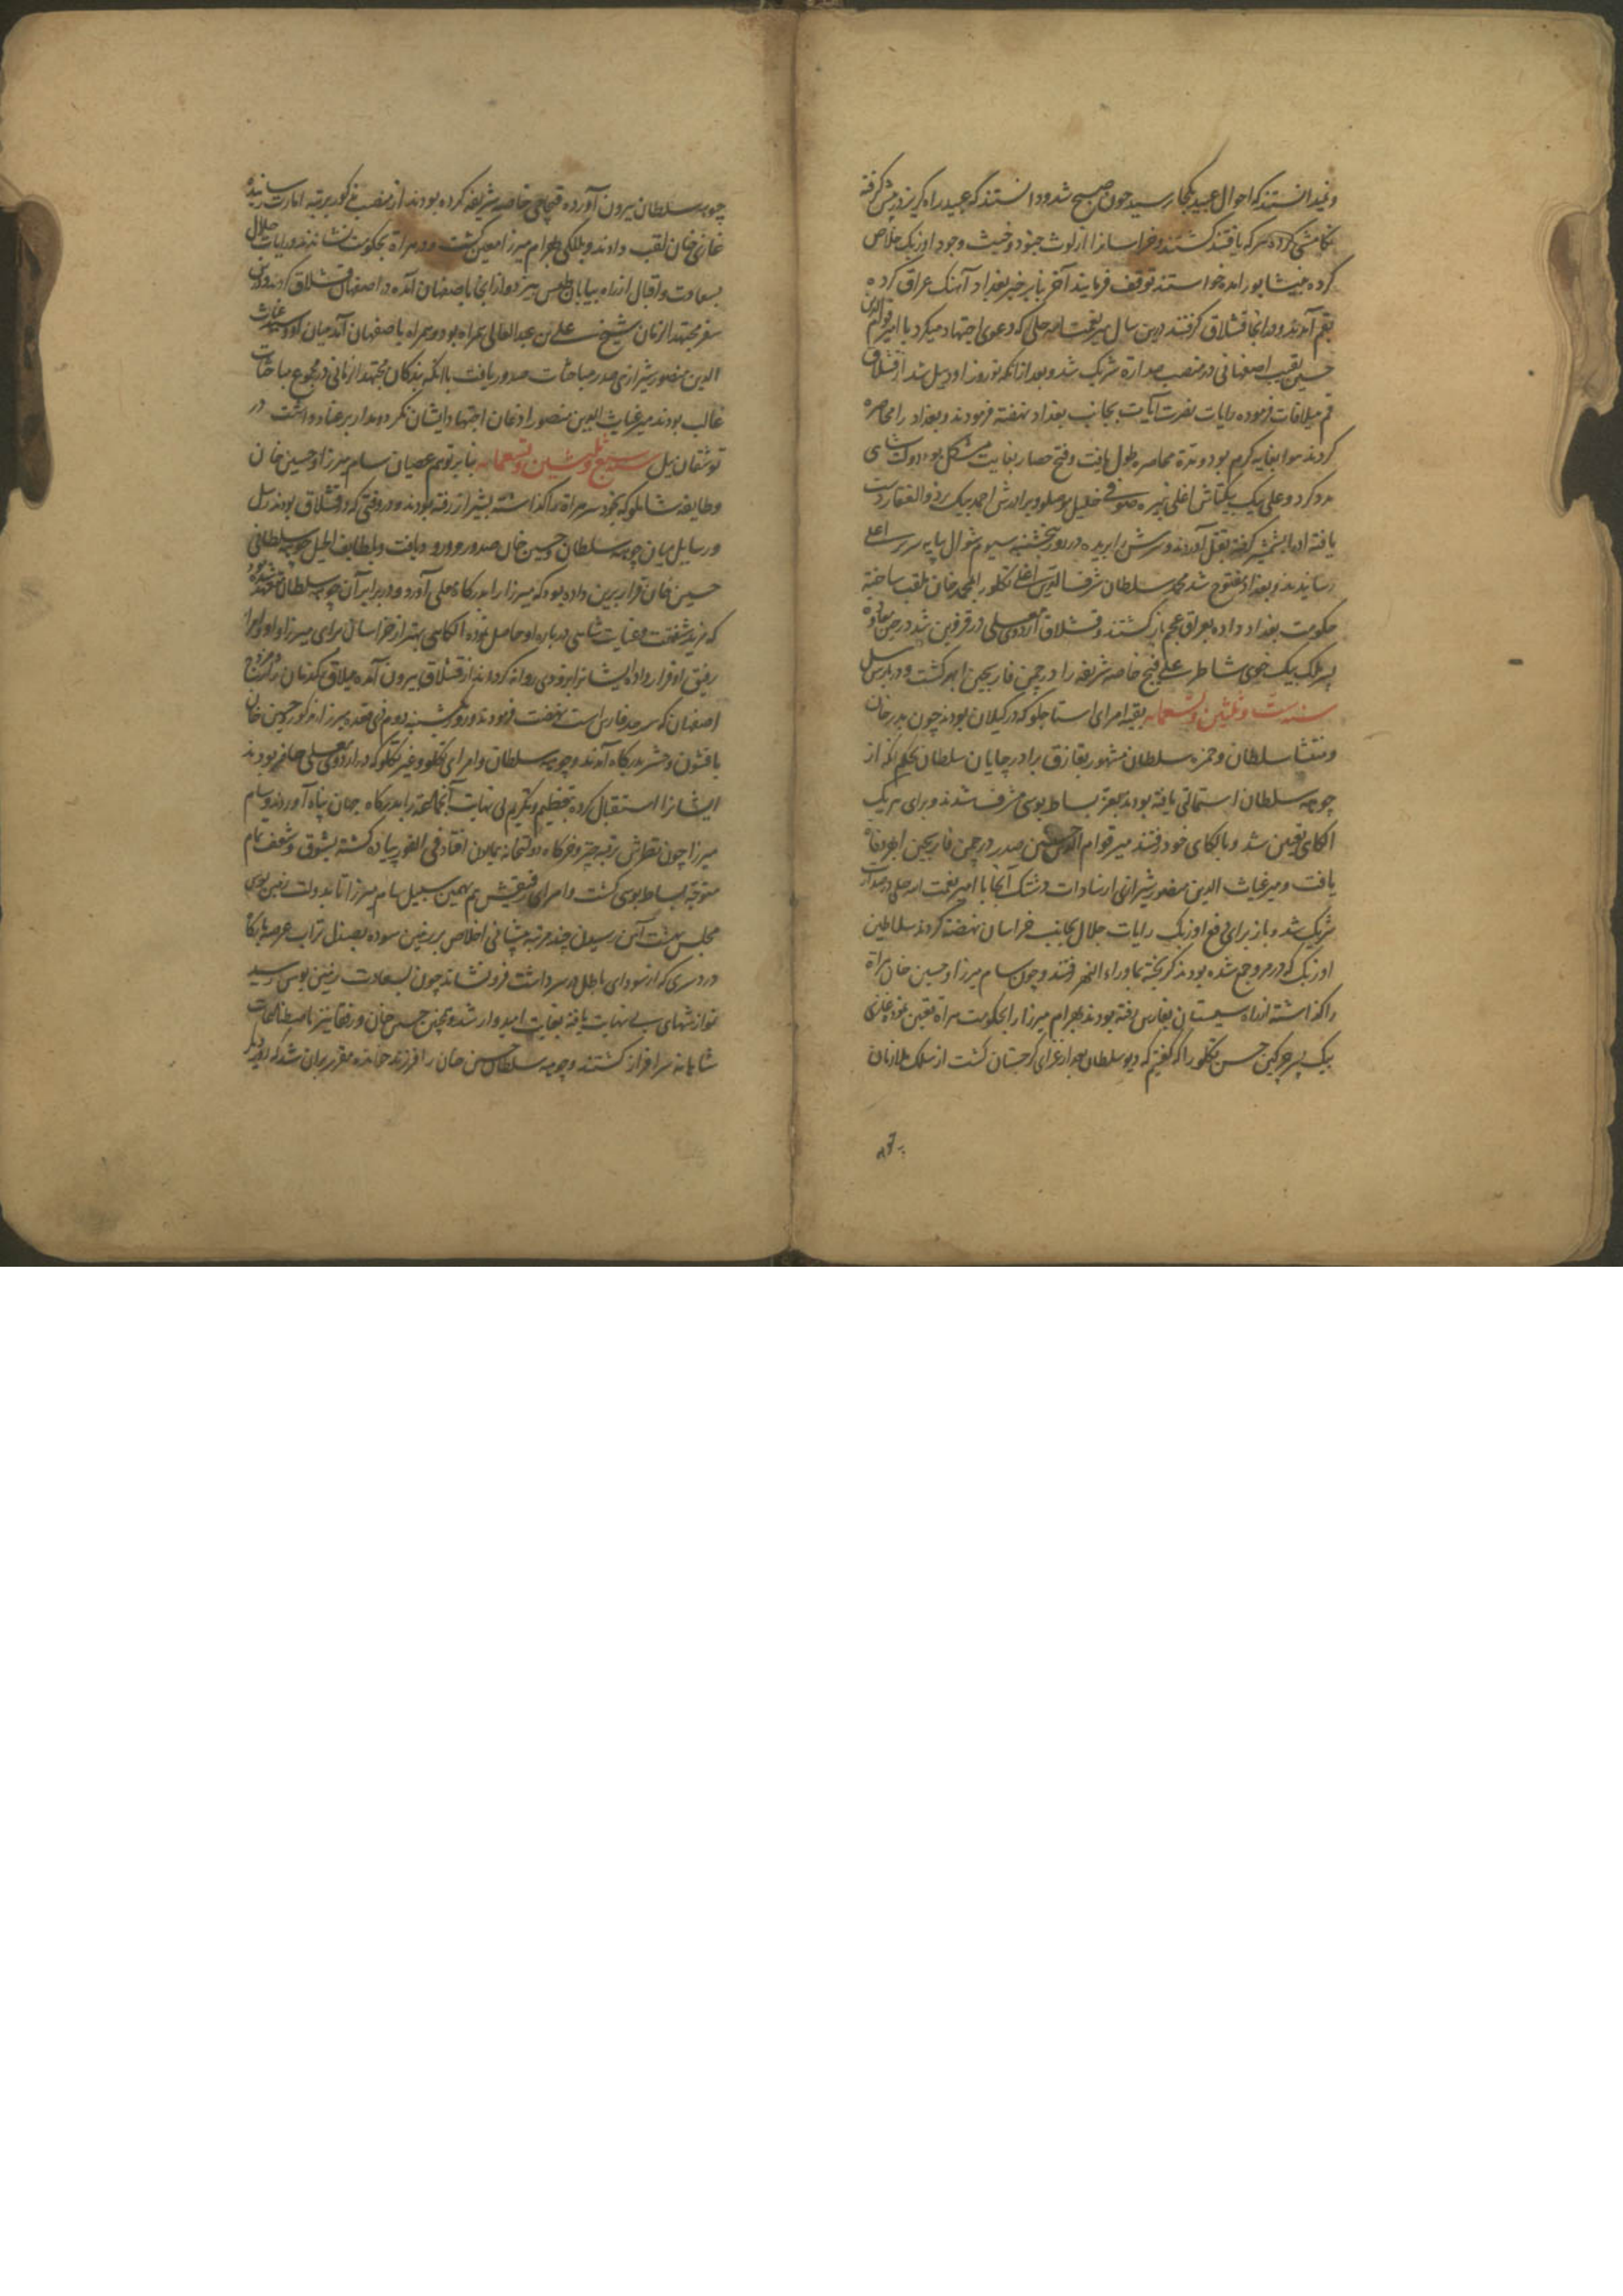 و نمیدانستند که احوال عبید بکجا رسید چون صبح شد و دانستند که عبید راه گریز در پیش گرفته
کرده هر که یافتند کشتند و خراسانرا از لوث جنود و خبث وجود اوزبک خلاص
کرده بنیشابور آمده خواستند توقف فرمایند آخر بنابر خبر بغداد آهنگ عراق کرده
بقم آمدند و در آنجا قشلاق گرفتند درین سال میر نعمت الله حلی که دعوی اجتهاد میکرد با امیر قوام الدین
حسین نقیب اصفهانی در منصب صدارة شریک شد و بعد از آنکه نوروز اودئیل شد از قشلاق
قم ییلاقات فرموده رایات نصرت آیات بجانب بغداد نهضة فرمودند و بغداد را محاصره
کردند هوا بغایه کرم بود و مدة محاصره طول یافت و فتح حصار بغایت مشکل بود دولت شاهی
مدد کرد و علی بیک بیکتاش اغلی نبیره صوفی خلیل موصلو و برادرش احمد بیک بر ذوالفقار دست
یافته او را بشمشیر گرفته بقتل آوردند و سرش را بریده در روز پنجشنبه سیوم شوال بپایه سریر اعلی
رسانیدند و بغداد مفتوح شد محمد سلطان شرف الدین اغلی تکلو را محمد خان لقب ساخته
حکومت بغداد داده بعراق عجم بازگشتند و قشلاق اردوی معلی در قزوین شد درین
پسر ملک بیک خوی شاطر علی خاصه شریفه را در چمن فارسجین ابهر کشت و در بارس ئیل
سنه ست و ثلثین و تسعمایه بقیه امرای استاجلو که در گیلان بودند چون بدر خان
و منتشا سلطان و حمزه سلطان مشهور بقازق برادر چایان سلطان بحکم آنکه از
چوهه سلطان استمالتی یافته بودند بعز بساط بوسی مشرف شدند و برای هر یک
الکای تعیین شد و بالکای خود رفتند میر قوام الدین حسین صدر در چمن فارسجین ابهر وفاة
یافت و میر غیاث الدین منصور شیرازی از سادات دشتک آنجا با امیر نعمت الله حلی در صدارت
شریک شد و باز برای دفع اوزبک رایات جلال بجانب خراسان نهضة کردند سلاطین
اوزبک که در مرو جمع شده بودند گریخته بماوراء النهر رفتند و چون سام میرزا و حسین خان هراة
را گذاشته از راه سیستان بفارس رفته بودند بهرام میرزا را بحکومت هراة تعیین نموده غازی
بیک پسر چرکین حسن تکلو را که گفتیم که دیو سلطان بعد از غزای گرجستان کشت از سلک ملازمان
چوهه سلطان بیرون آورده قیچاچی خاصه شریفه کرده بودند از منصب مذکور بمرتبه امارت رسانیده
غازی خان لقب دادند و بللگی بهرام میرزا معین گشت و در هراة بحکومت نشاندند و رایات جلال
بسعادت و اقبال از راه بیابان طبس بیزد و از آنجا باصفهان آمده در اصفهان قشلاق کردند و درین
سفر مجتهد الزمان شیخ علی بن عبد العالی همراه بود و همراه باصفهان آمد میان او و میر غیاث
الدین منصور شیرازی صدر مباحثات صدور یافت با آنکه بندگان مجتهد الزمانی در مجموع مباحثات
غالب بودند میر غیاث الدین منصور اذعان اجتهاد ایشان نکرده مدار بر عناد داشت در
توشقان ئیل سنه سبع و ثلثین و تسعمایه بنابر توهم عصیان سام میرزا و حسین خان
و طایفه شاملو که بخود سر هراة را گذاشته بشیراز رفته بودند و در وقتی که در قشلاق بودند رسل
و رسایل میان چوهه سلطان و حسین خان صدور و ورود یافت و بلطایف الحیل چوهه سلطانی
حسین خان قرار برین داده بود که میرزا را بدرگاه معلی آورد و در برابر آن چوهه سلطان متعهد شده بود
که مزید شفقت و عنایت شاهی درباره او حاصل نموده الکائی بهتر از خراسان برای میرزا و او و امرا
رفیق او قرار داد ایشانرا بزودی روانه کرداند از قشلاق بیرون آمده بییلاق
اصفهان که سرحد فارس است نهضت فرمودند و روز یکشنبه دوم ذی قعده میرزا مذکور و حسین خان
با قشون و حشر بدرگاه آمدند و چوهه سلطان و امرای تکلو و غیر تکلو که در اردوی معلی حاضر بودند
ایشانرا استقبال کرده بتعظیم و تکریم بی نهایت آنجماعة را بدرگاه جهان پناه آوردند و سام
میرزا چون نظرش بر قبه چتر و خرگاه دولتخانه همایون افتاد فی الفور پیاده گشته بشوق و شعف تمام
متوجه بساط بوسی گشت و امرای رفیقش هم بهمین سبیل سام میرزا تا بدولت زمین بوسی
مجلس بهشت آئین رسیدن چند مرتبه پیشانی اخلاص بر زمین سوده بصندل تراب عرصه بارگاه
دردسری که از سودای باطل در سر داشت فرو نشاند چون بسعادت زمین بوس رسید
نوازشهای بی نهایت یافته بغایت امیدوار شد و همچنین حسین خان و رفقا نیز باصطناعات
شاهانه سرافراز گشتند و چوهه سلطان حسین خان را فرزند خوانده مقرر بران شد که